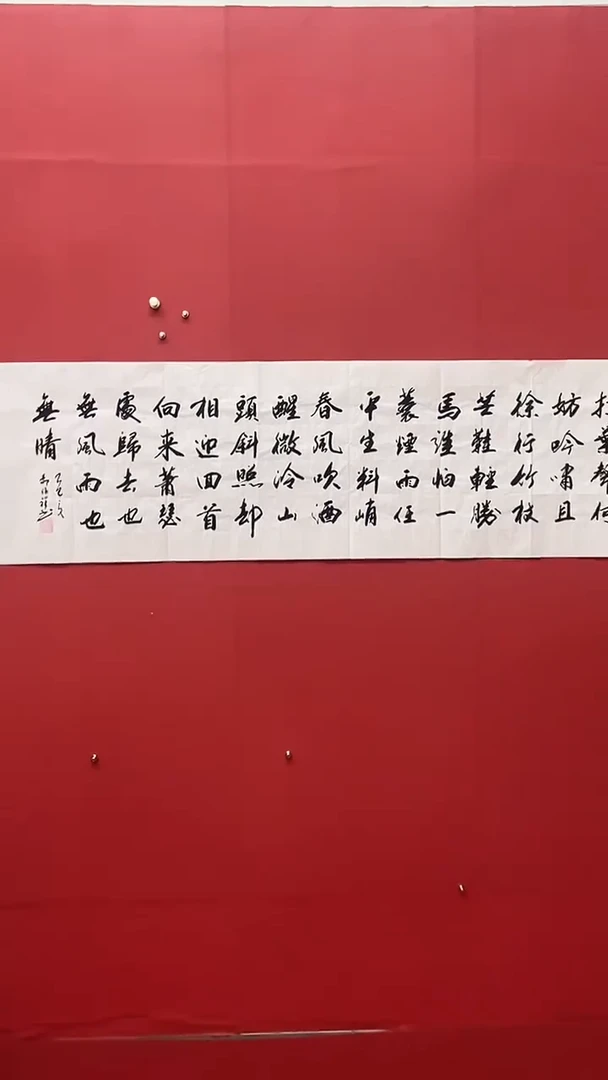 打葉聲何
妨吟嘯且
徐行竹杖
芒鞋輕勝
馬誰怕一
蓑煙雨任
平生料峭
春風吹酒
醒微冷山
頭斜照却
相迎回首
向来蕭瑟
處歸去也
無風雨也
無晴